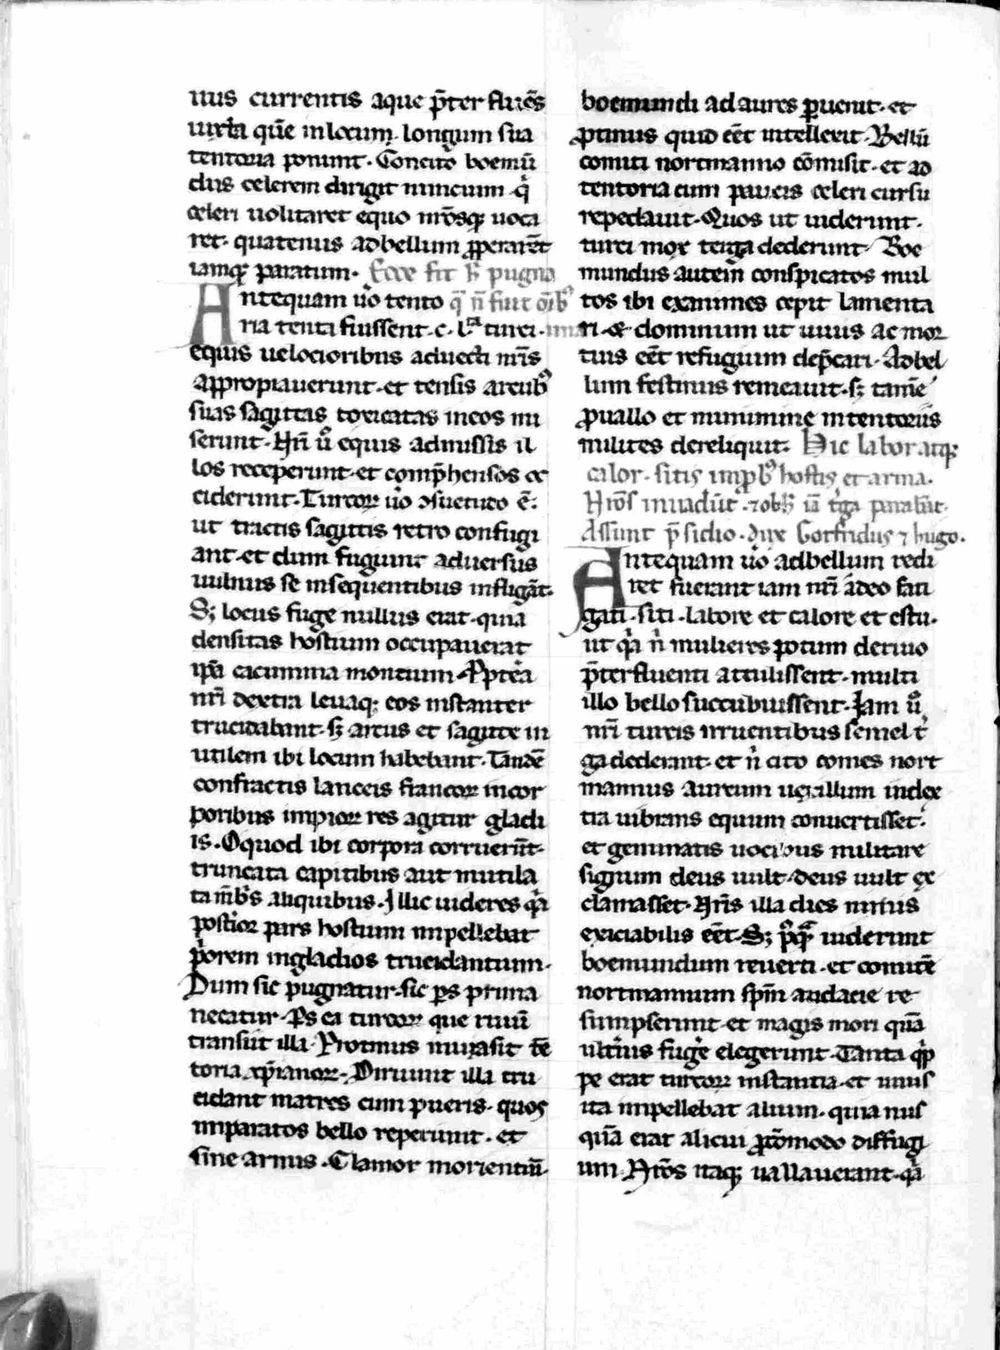 uus currentis aque p̄ter fluēs
iuxta quē in locum. longum sua
tentoria ponunt. Concito boemū
dus celerem dirigit nuncium q̇
celeri uolitaret equo nr̄osq; uoca
ret. quatenus ad bellum ꝓperarēt
iamq; paratum. Ecce fit h̄ pugna
Antequam u̇o tento q̄ n̄ fuit oīb᷒
ria tenti fiussent .c. lͣ turci.
equis uelocioribus aduecti nr̄is
appropiauerunt. et tensis arcub᷒
suas sagittas toxicatas in eos mi
serunt. Nr̄i u̇o equis admissis il
los receperunt. et comp̄hensos oc
ciderunt. Turcoꝝ u̇o ↄsuetudo ē.
ut tractis sagittis retro confugi
ant. et dum fugiunt aduersus
uulnus se insequentibus infligāt.
S; locus fuge nullus erat. quia
densitas hostium occupauerat
ip̄a cacumina montium. Ꝓpterea
nr̄i dextra leuaq; eos instanter
trucidabant. s; arcus et sagitte in
utilem ibi locum habebant. Tandē
confractis lanceis francoꝝ in cor
poribus impioꝝ res agitur gladi
is. O quod ibi corpora corruerūt.
truncata capitibus aut mutila
ta mēb̄s aliquibus. Illic uideres qͣ
post̄ioꝝ pars hostium impellebat
p̄orem in gladios trucidantium.
Dum sic pugnatur. sic ps prima
necatur. Ps ea turcoꝝ que riuū
transiit illa. Protinus inuasit tē
toria xp̄ianoꝝ. Diruunt illa tru
cidant matres cum pueris. quos
imparatos bello reperiunt. et
sine armis. Clamor morientiū.
boemundi ad aures ꝑuenit. et
ꝓtinus quid eēt intellexit. Bellū
comiti nortmanno cōmisit. et ad
tentoria cum paucis celeri cursu
repedauit. Quos ut uiderunt.
turci mox terga dederunt. Boe
mundus autem conspicatos mul
tos ibi exanimes cepit lamenta
ri. et dominum ut uiuis ac mor
tuis eēt refugium dep̄cari. Ad bel
lum festinus remeauit. s; tamē
ꝓ uallo et munimine in tentoriis
milites dereliquit. Hic labor atq;
calor. sitis imꝑb᷒ hostis et arma.
Nr̄os inuadūt. ⁊ob᷒ iā t̄ga parabāt.
Assunt p̄sidio. dux Gotfridus ⁊ hugo.
Antequam u̇o ad bellum redi
ret fuerant iam nr̄i adeo fati
gati. siti. labore et calore et estu.
ut qͣ n̄ mulieres potum de riuo
p̄terfluenti attulissent. multi
illo bello succubuissent. Iam u̇o
nr̄i turcis irruentibus semel t̄
ga dederant. et n̄ cito comes nort
mannus aureum uexillum in dex
tra uibrans equum conuertisset.
et geminatis uocibus militare
signum deus uult. deus uult ex
clamasset. Nr̄is illa dies nimis
exiciabilis eēt. S; pꝰqͣ uiderunt
boemundum reuerti. et comitē
nortmannum sp̄m audacie re
sumpserunt. et magis mori quā
ult̄ius fuge elegerunt. Tanta q̄p
pe erat turcoꝝ instantia. et unus
ita impellebat alium. quia nus
quā erat alicui ꝓcōmodo diffugi
um. Nr̄os itaq; uallauerant. qͣ